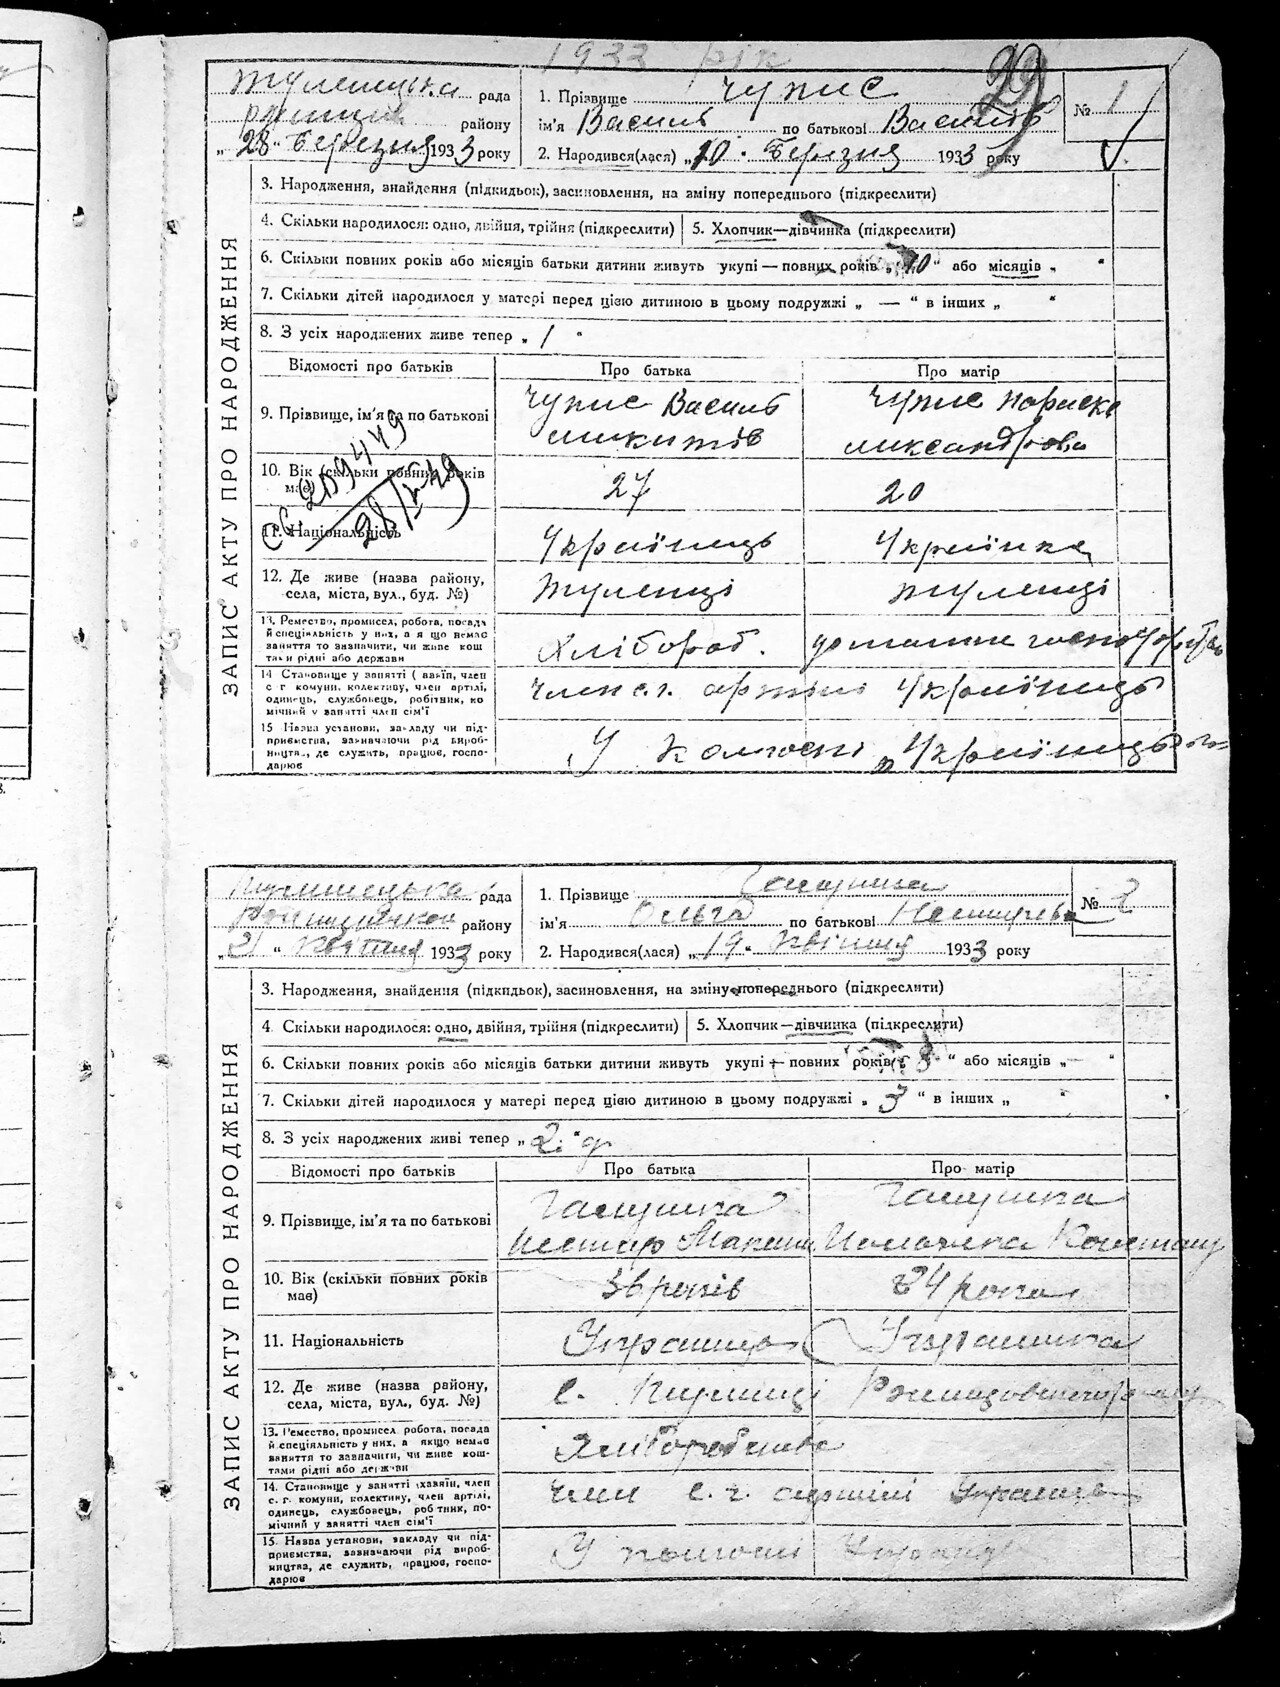 1933 рік
29
Тулинцька рада
району
„28“ Березня 1933 року
1. Прізвище Чупис
ім'я Василь по батькові Васильів
2. Народився(лася) „10“ Березня 1933 року
№ 1
ЗАПИС АКТУ ПРО НАРОДЖЕННЯ
3. Народження, знайдення (підкидьок), засиновлення, на зміну попереднього (підкреслити)
4. Скільки народилося: одно, двійня, трійня (підкреслити)
5. Хлопчик—дівчинка (підкреслити)
6. Скільки повних років або місяців батьки дитини живуть укупі — повних років „10“ або місяців „ “
7. Скільки дітей народилося у матері перед цією дитиною в цьому подружжі „ — “ в інших „ “
8. З усіх народжених живе тепер „ 1 “
Відомості про батьків
Про батька
Про матір
9. Прізвище, ім'я та по батькові
Чупис Василь
Микитів
Чупис Параска
10. Вік (скільки повних років має)
27
20
209449
11. Національність
Українець
Українка
12. Де живе (назва району,
села, міста, вул., буд. №)
Тулинці
Тулинці
13. Ремество, промисел, робота, посада
й спеціальність у них, а якщо немає
заняття то зазначити, чи живе кош
тами рідні або держави
Хлібороб.
домашнє
14 Становище у занятті (хазяїн, член
с г комуни, колективу, член артілі,
одинець, службовець, робітник, по
мічний у занятті член сім'ї
Член с.г. артілі Українець
15 Назва установи, закладу чи під-
приємства, зазначаючи рід вироб-
ництва, де служить, працює, госпо-
дарює
У колгоспі „Українець“
рада
району
„21“ Квітня 1933 року
1. Прізвище
ім'я Ольга по батькові
2. Народився(лася) „19“ Квітня 1933 року
№ 2
ЗАПИС АКТУ ПРО НАРОДЖЕННЯ
3. Народження, знайдення (підкидьок), засиновлення, на зміну попереднього (підкреслити)
4 Скільки народилося: одно, двійня, трійня (підкреслити)
5. Хлопчик—дівчинка (підкреслити)
6. Скільки повних років або місяців батьки дитини живуть укупі — повних років „ 8 “ або місяців „ — “
7. Скільки дітей народилося у матері перед цією дитиною в цьому подружжі „ 3 “ в інших „ “
8. З усіх народжених живі тепер „ 2 “
Відомості про батьків
Про батька
Про матір
9. Прізвище, ім'я та по батькові
10. Вік (скільки повних років
має)
36 років
34 роки
11. Національність
Українець
Українка
12. Де живе (назва району,
села, міста, вул., буд. №)
с.
13. Ремество, промисел робота, посада
й спеціальність у них, а якщо немає
заняття то зазначити, чи живе кош-
тами рідні або держави
Хліборобство
14. Становище у занятті хазяїн, член
с. г. комуни, колективу, член артілі,
одинець, службовець, робітник, по-
мічний у занятті член сім'ї
Член с. г. артілі Українець
15. Назва установи, закладу чи під-
приємства, зазначаючи рід вироб-
ництва, де служить, працює, госпо-
дарює
У колгоспі